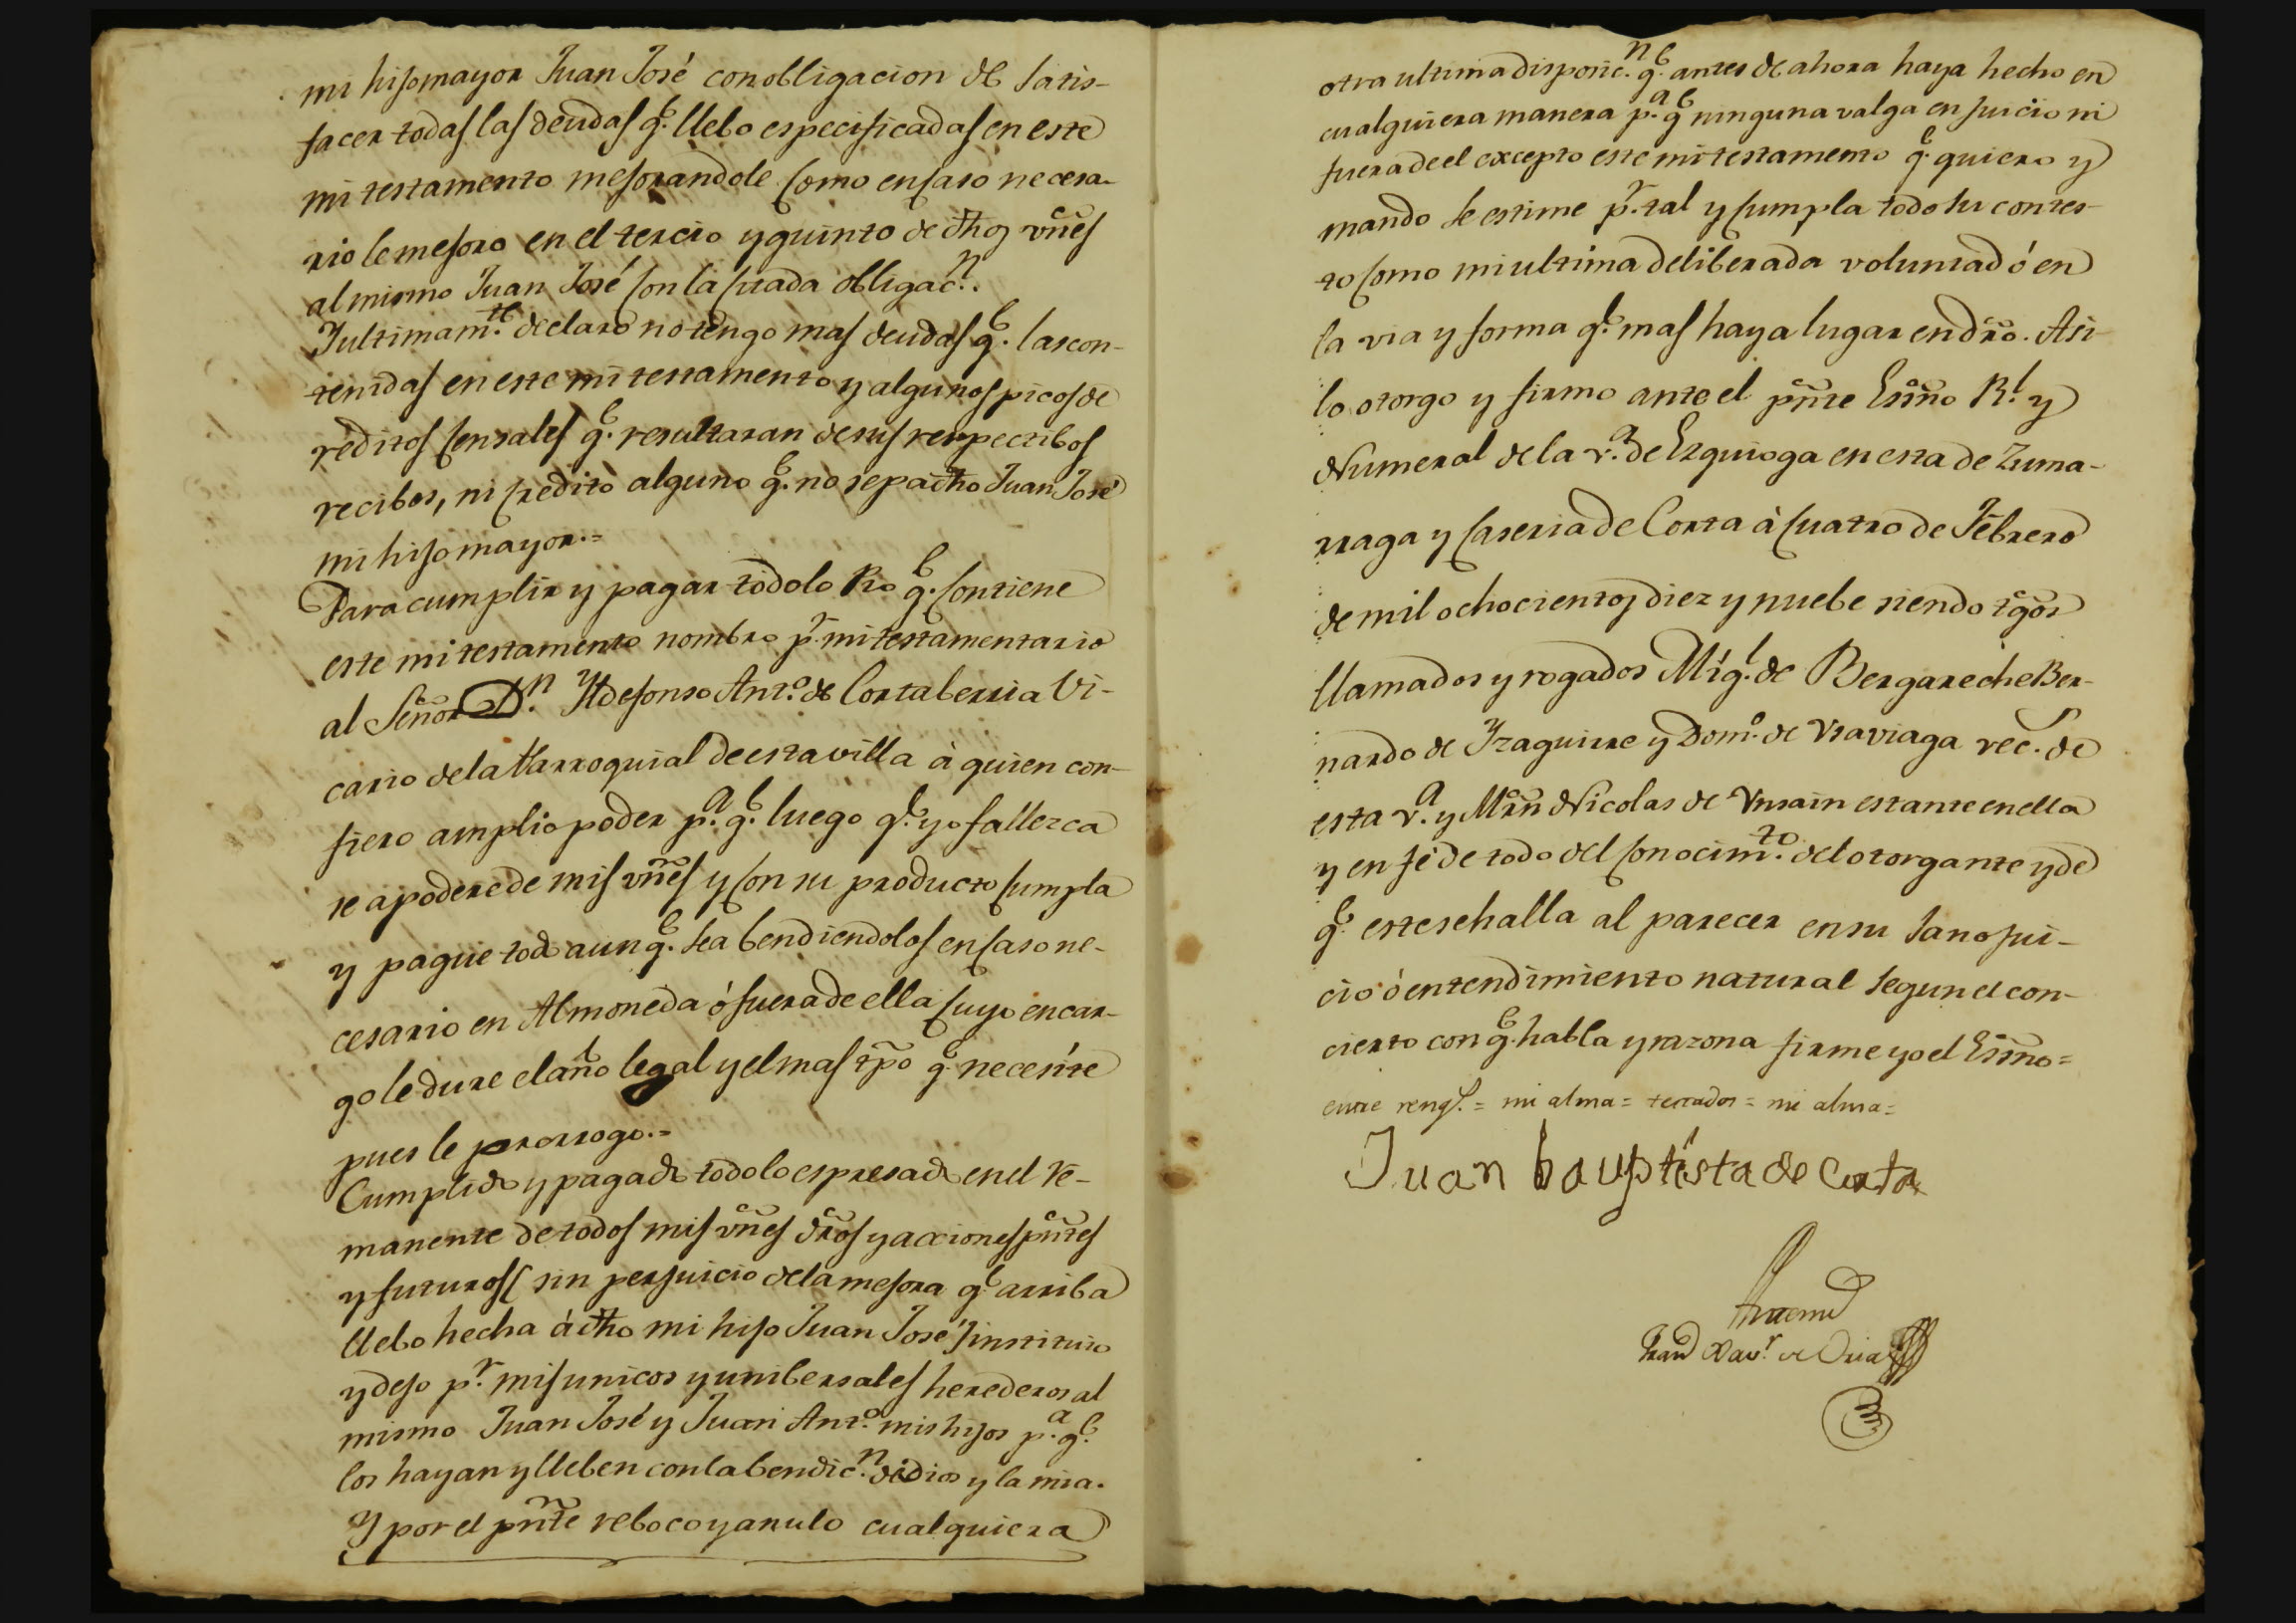 mi hijo mayor Juan José con obligacion de satis-
facer todas las deudas q.e llebo especificadas en este
mi testamento mejorandole como en caso necesa-
rio le mejoro en el tercio y quinto de dhos vñes
al mismo Juan José con la citada obligac.n.
Y ultimam.te declaro no tengo mas deudas q.e las con-
tenidas en este mi testamento y algunos picos de
reditos censales q.e resultaran de sus respectibos
recibos, ni credito alguno q.e no sepa dho Juan José
mi hijo mayor.=
Para cumplir y pagar todo lo pio q.e contiene
este mi testamento nombro p.r mi testamentario
al Señor D.n Yldefonso Ant.o de Cortaberria Vi-
cario de la Parroquial de esta villa à quien con-
fiero amplio poder p.a q.e luego q.e yo fallezca
se apodere de mis vñes y con su producto cumpla
y pague todo aunq.e sea bendiendolos en caso ne-
cesario en Almoneda ó fuera de ella cuyo encar-
go le dure el año legal y el mas tpo q.e necesite
pues le prorrogo.=
Cumplido y pagado todo lo espresado en el re-
manente de todos mis vñes dros y acciones pñtes
y futuros ( sin perjuicio de la mejora q.e arriba
llebo hecha á dho mi hijo Juan José ) instituio
y dejo p.r mis unicos y unibersales herederos al
mismo Juan José y Juan Ant.o mis hijos p.a q.e
los hayan y lleben con la bendic.n de dios y la mia.
Y por el pñte reboco y anulo cualquiera
otra ultima disposic.n q.e antes de ahora haya hecho en
cualquiera manera p.a q.e ninguna valga en juicio ni
fuera de el excepto este mi testamento q.e quiero y
mando se estime p.r tal y cumpla todo su contes-
to como mi ultima deliberada voluntad ó en
la via y forma q.e mas haya lugar en dro. Asi
lo otorgo y firmo ante el pñte Essño R.l y
Numeral de la v.a de Ezquioga en esta de Zuma-
rraga y Caseria de Corta à cuatro de Febrero
de mil ochocientos diez y nuebe siendo tgos
llamados y rogados Mig.l de Bergareche Ber-
nardo de Yzaguirre y Dom.o de Vraviaga vec.s de
esta v.a y Mrñ Nicolas de Vnsain estante en ella
y en fé de todo del conocim.to del otorgante y de
q.e este se halla al parecer en su sano jui-
cio ó entendimiento natural segun el con-
cierto con q.e habla y razona firme yo el Essño=
entre rengs. = mi alma = testados = mi alma =
Juan bauptista de Corta
Antemi
Fran.co Xav.r de Oria